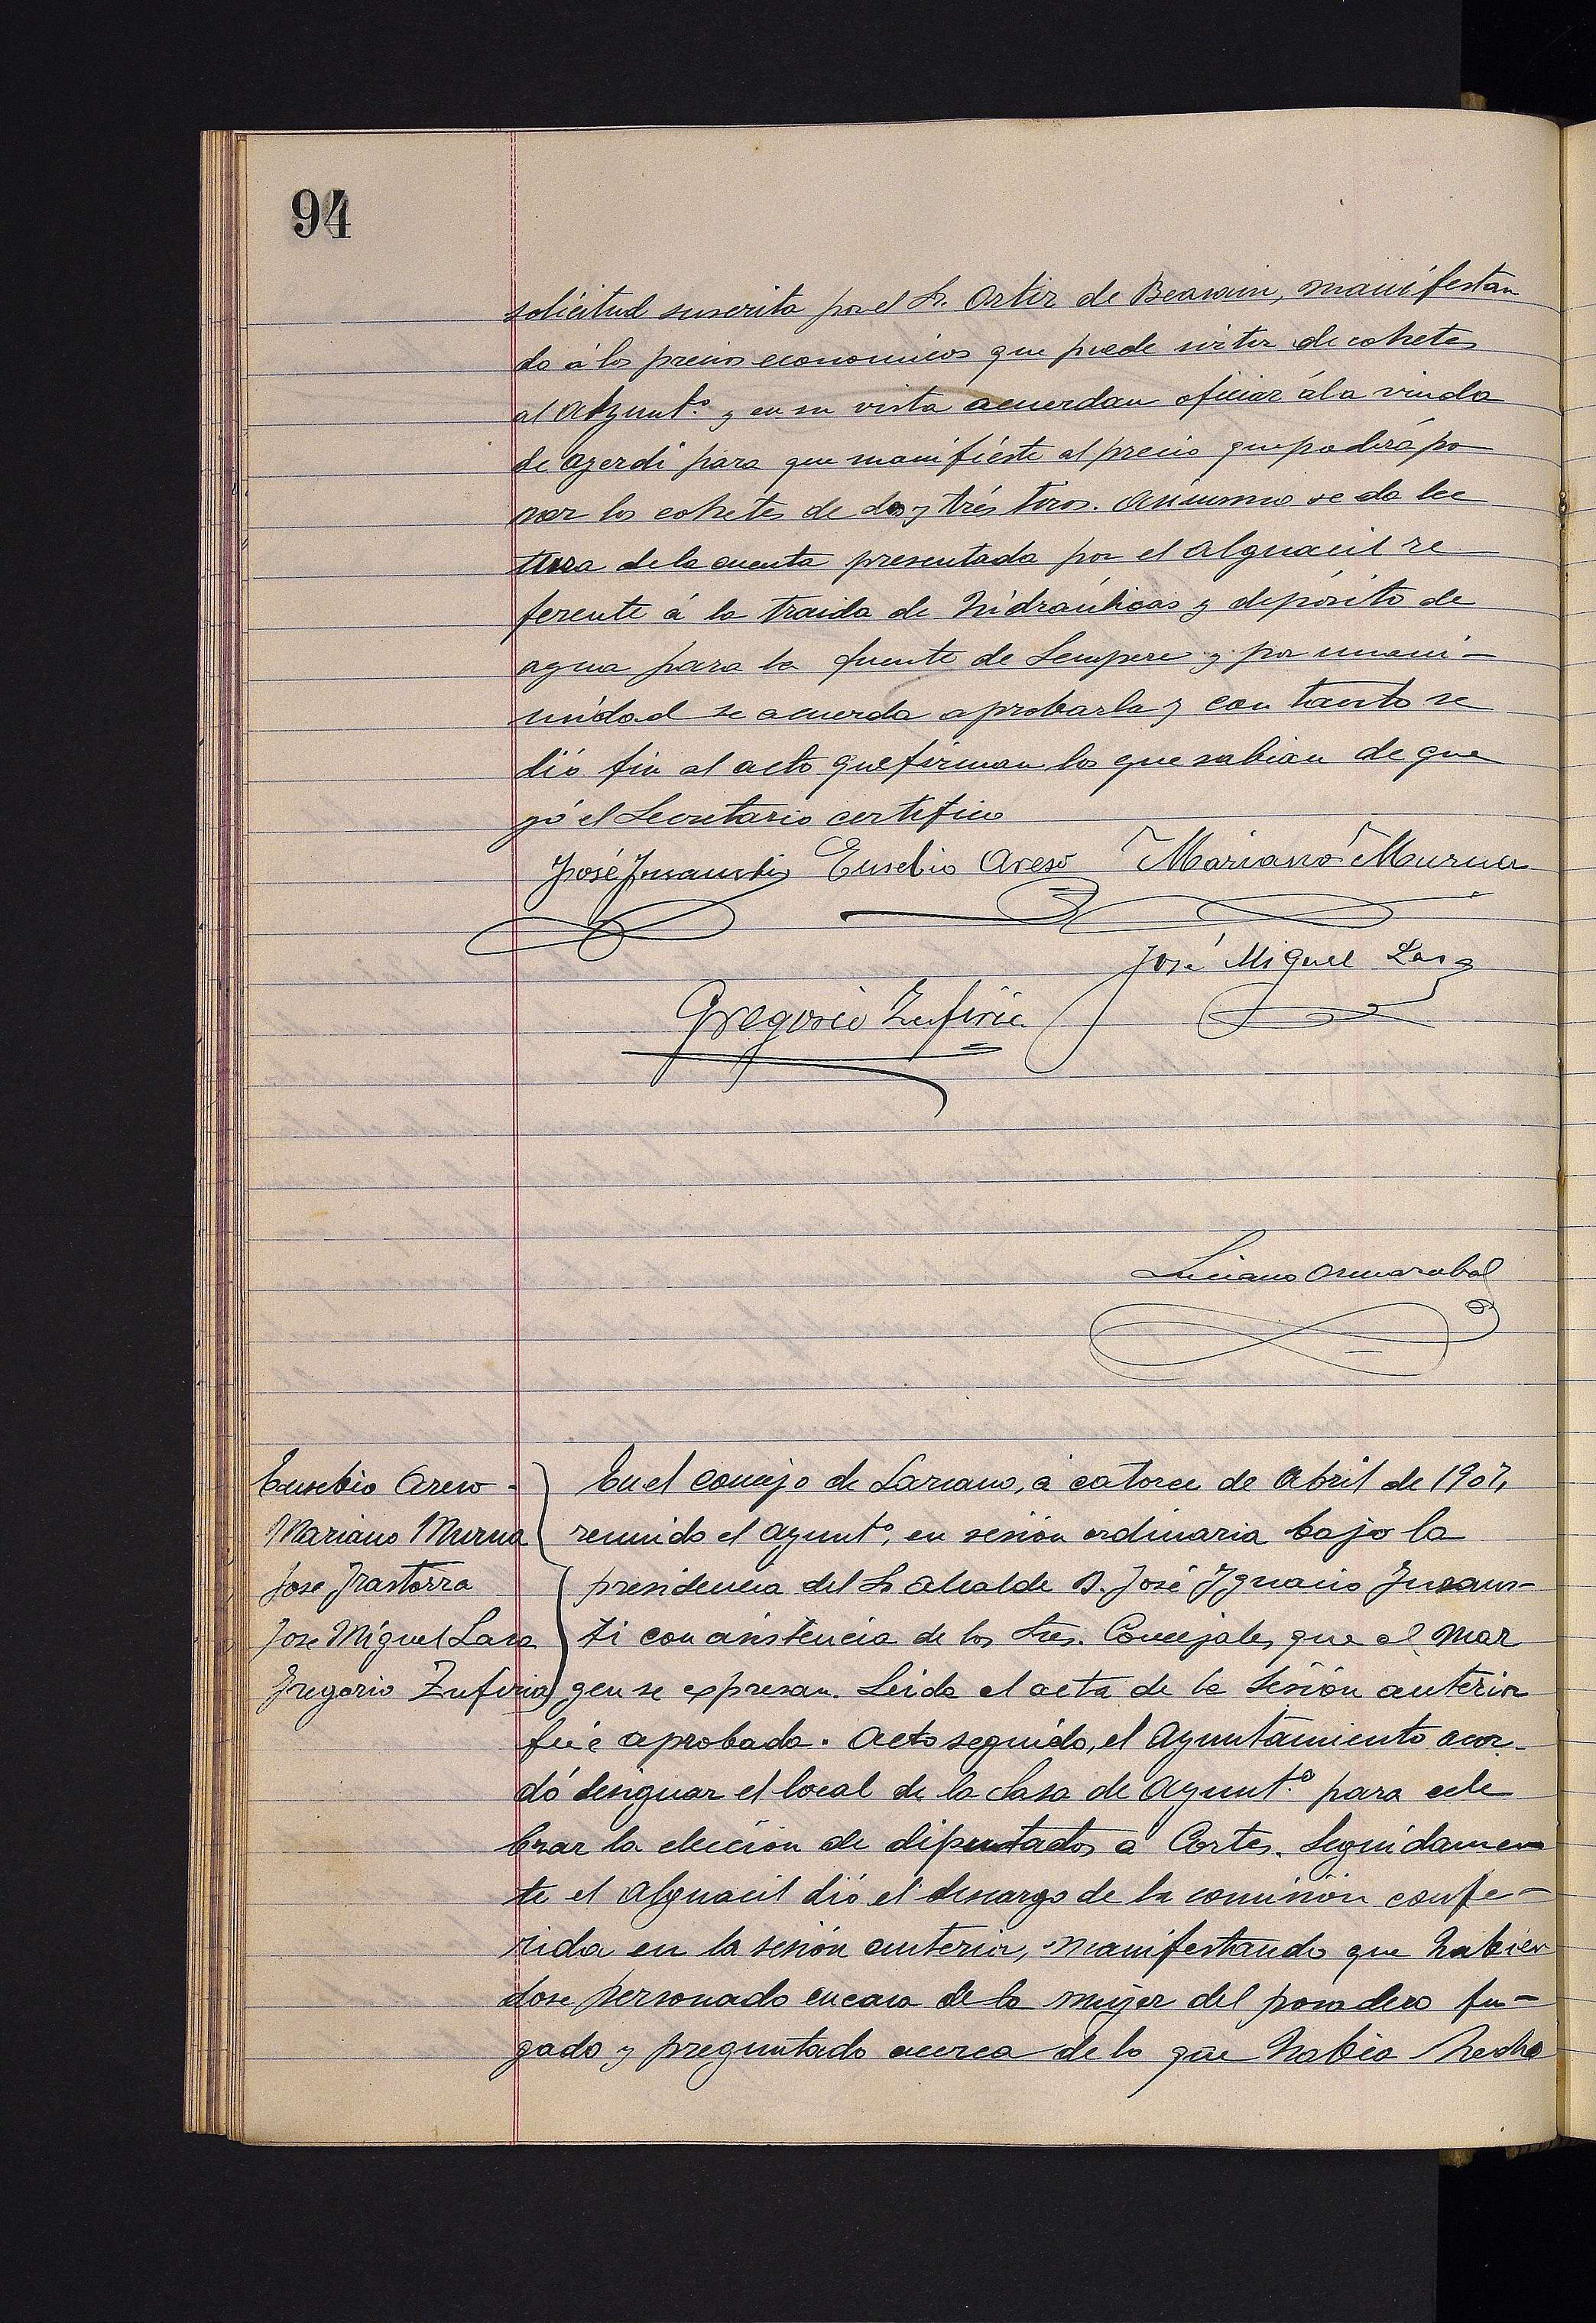 94
solicitud suscrita por el Sr. Ortiz de Beasain, manifestan
do á los precios economicos que puede sirtir de cohetes
al Ayunt.º y en su vista acuerdan oficiar á la viuda
de Azerdi para que manifiéste al precio que podrá po
ner los cohetes de dos y trés tiros. Asimismo se da lec
tura de la cuenta presentada por el Alguacil re
ferente á la traida de hidraúlicas y depósito de
agua para la fuente de Sempere y por unani-
midad se acuerda aprobarla y con tanto se
dió fin al acto que firman los que sabian de que
yó el Secretario certifico
José Insausti Eusebio Areso Mariano Murua
José Miguel Lasa
Gregorio Zufiria
Luciano Armarabal
Eusebio Areso -
Mariano Murua
Jose Irastorza
Jose Miguel Lasa
Gregorio Zufiria
En el concejo de Lazcano, á catorce de Abril de 1907,
reunido el ayunt.º, en sesión ordinaria bajo la
presidencia del Sr Alcalde D. José Ygnacio Insaus-
ti con asistencia de los Sres. Concejales que al mar
gen se expresan. Leida el acta de la sesión anterior
fué aprobada. Acto seguido, el Ayuntamiento acor-
dó designar el local de la Casa de Ayunt.º para cele
brar la elección de diputados á Cortes. Seguidamen
te el Alguacil dió el descargo de la comisión confe-
rida en la sesión anterior, manifestando que habien
dose personado en casa de la mujer del posadero fu-
gado y preguntado acerca de lo que habia hecho